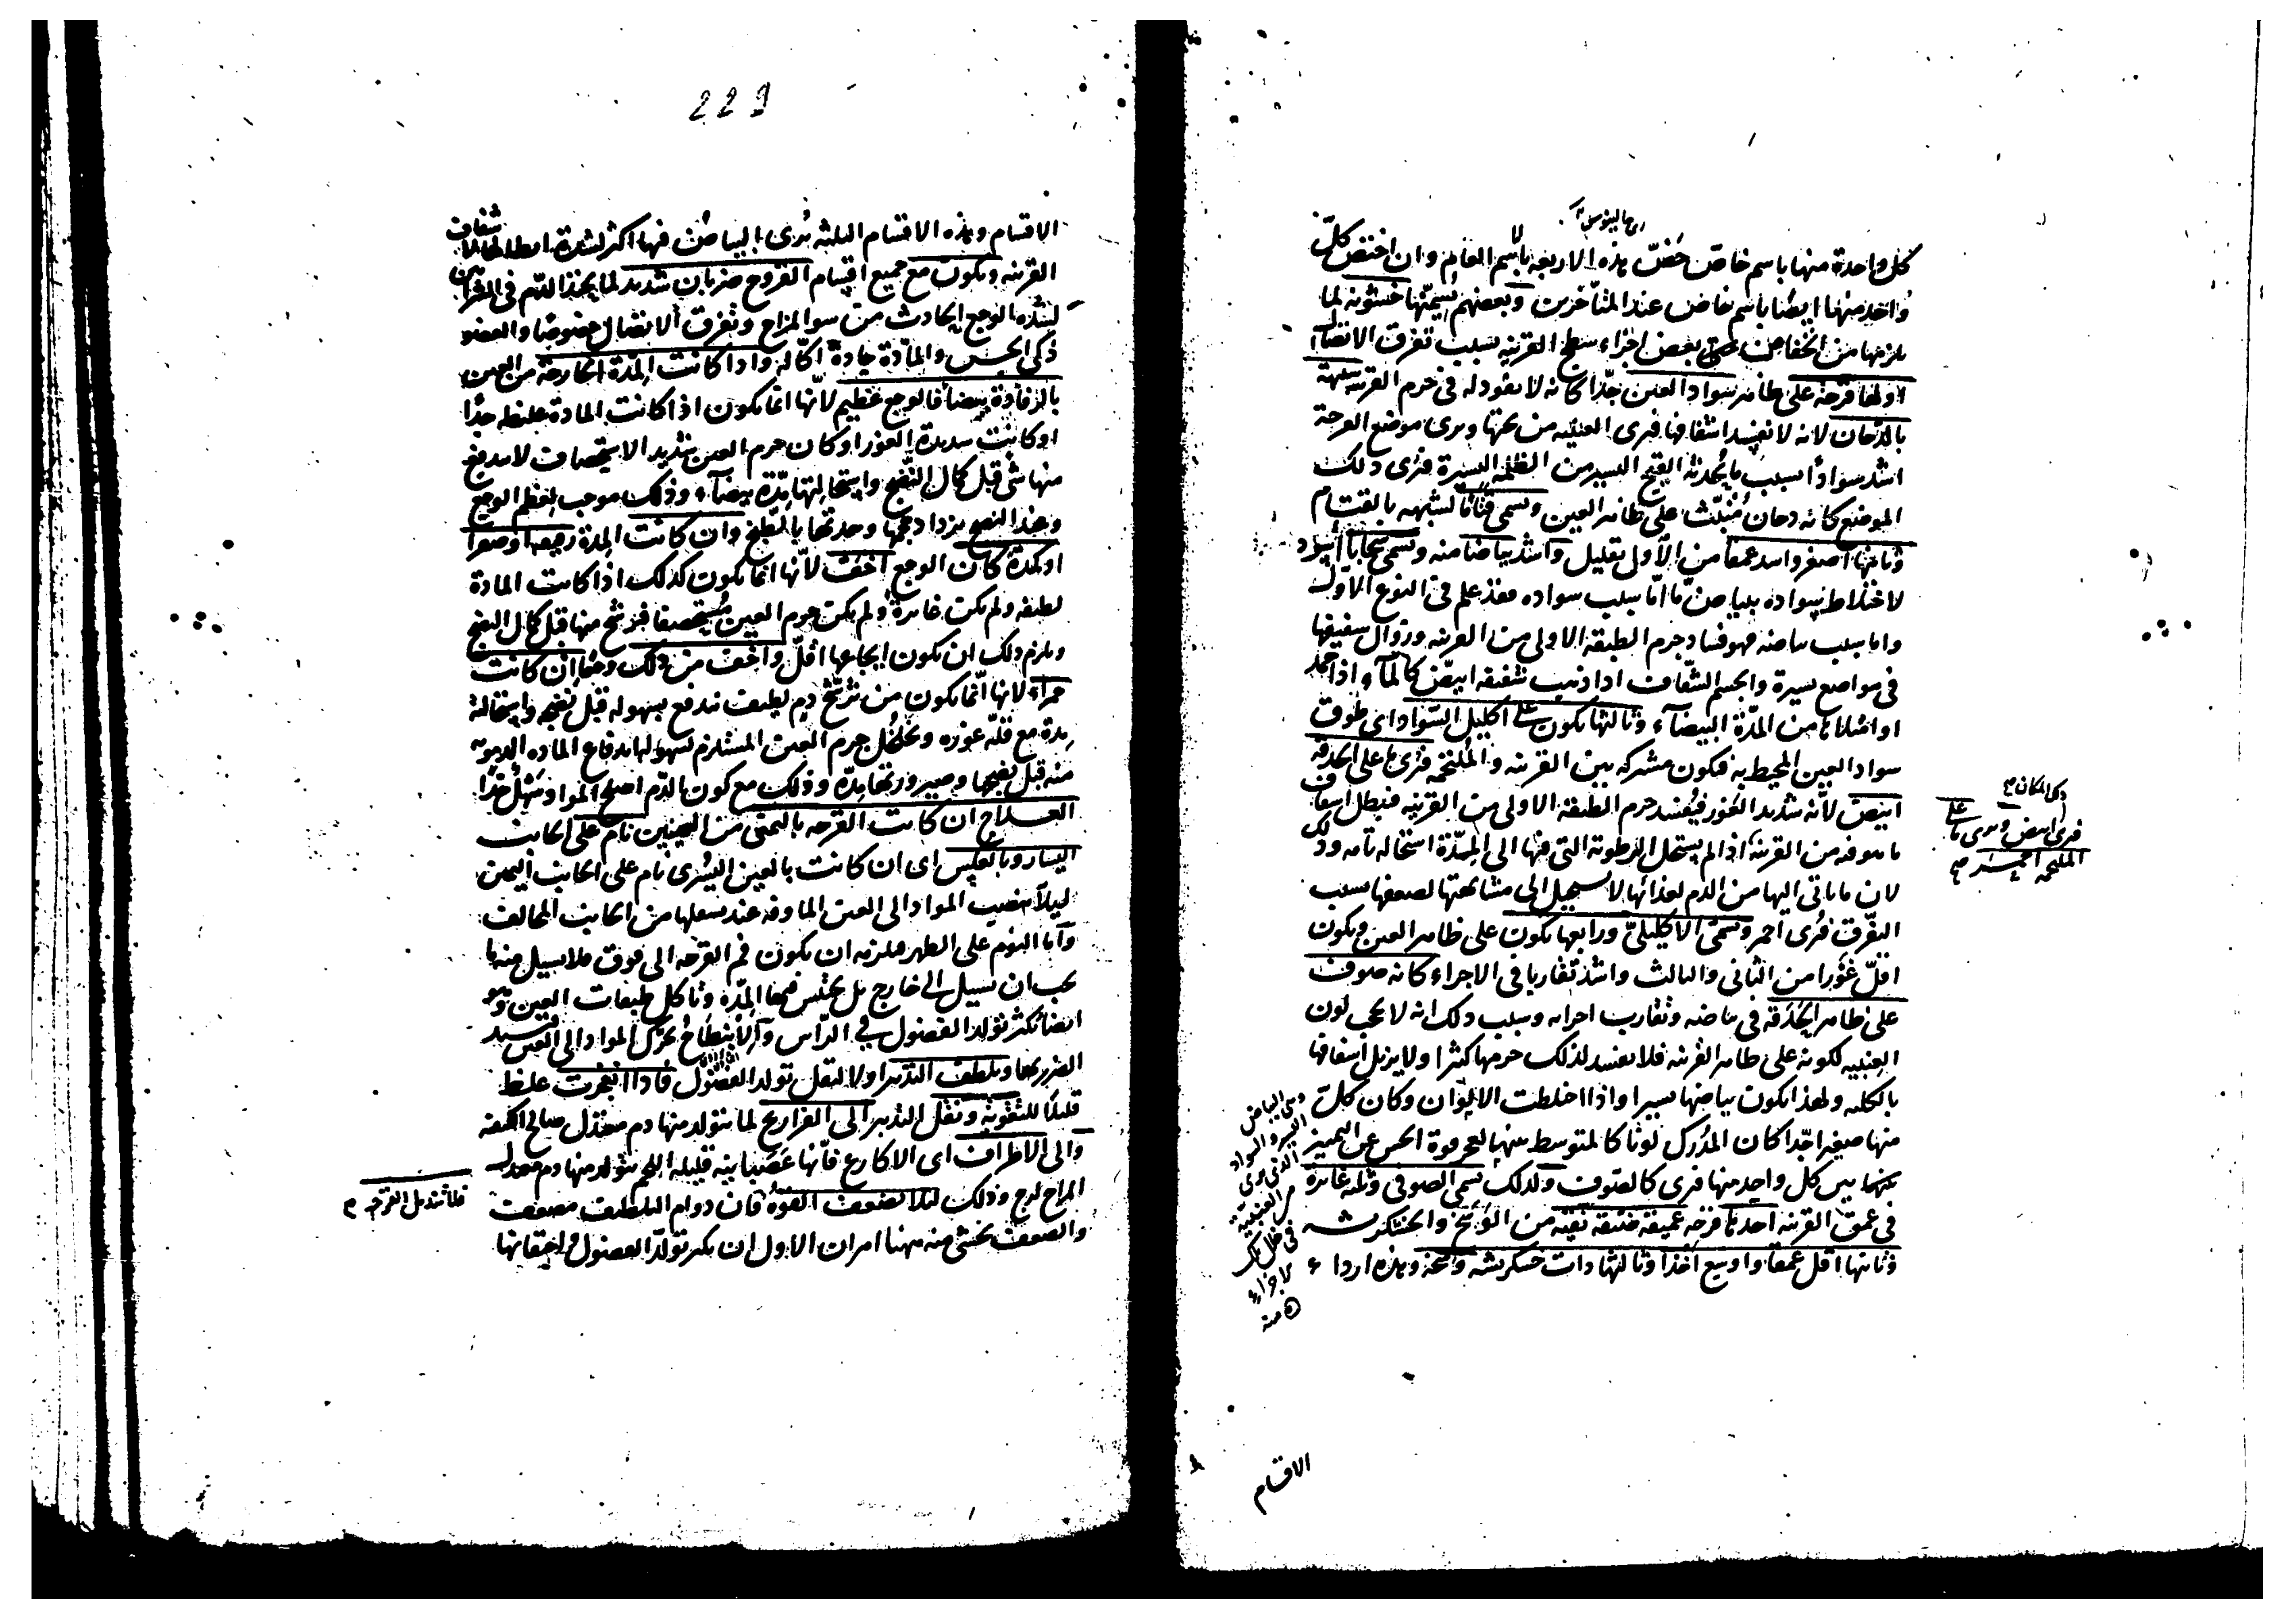 اى جالينوس
كل واحدة منها باسم خاص خصّ هذه الاربعة لا باسم العام وان اختص كلّ
واحد منها ايضا باسم خاص عند المتأخرين وبعضهم يسمّيها خشونة لما
يلزمها من انخفاض بعض اجزاء سطح القرنيه بسبب تفرق الاتصال
اولها قرحة على ظاهر سواد العين جدّا كانه لا نفود له فى جرم القرنيه شبيهة
بالدخان لانه لا يفسد اشفافها فيرى العنبيه من تحتها ويرى موضع القرحة
اشد سوادا بسبب ما يحدثه القيح اليسير من الظلمة اليسيرة فيرى ذلك
الموضع كانه دخان منبث على ظاهر العين ويسمى قتاما لشبهه بالقتام
وثانيها اصغر واشد عمقا من الاول بقليل واشد بياضا منه ويسمى سحابا
لاختلاط سواده ببياض ما اما سبب سواده فقد علم فى النوع الاول
واما سبب بياضه فهو فساد جرم الطبقة الاولى من القرنيه وزوال شفيفها
فى مواضع يسيرة والجسم الشفاف اذا ذهب شفيفه ابيض كالماء اذا جمد
او امتلائها من المدّة البيضاء وثالثها يكون على اكليل السواد اى طوق
سواد العين المحيط به فيكون مشركه بين القرنيه والملتحمه فترى ما على الحدقة
ابيض لانّه شديد الغور فيفسد جرم الطبقة الاولى من القرنيه فيبطل اشفاف
ما هو فيه من القرنيه اذا لم يستحل الرطوبة التى فيها الى المدّة استحالة تامه وذلك
لان ما ياتى اليها من الدم لغذائها لا يستحيل الى مشابهتها لضعفها بسبب
التفرّق فيرى احمر ويسمّى الاكليلىّ ورابعها يكون على ظاهر العين ويكون
اقلّ غورا من الثانى والثالث واشد تقاربا فى الاجزاء كانه صوف
على ظاهر الحدقة فى بياضه وتقارب اجزائه وسبب ذلك انه لا يحجب لون
العنبيه لكونه على ظاهر القرنيه فلا يفسد لذلك جرمها كثيرا ولا يزيل اشفافها
بالكليه ولهذا يكون بياضها يسيرا واذا اختلطت الالوان وكان كلّ
منها صغيرا جدّا كان المدرك لونا كالمتوسط بينها لعجز قوة الحس عن التمييز
بين كل واحد منها فيرى كالصوف ولذلك يسمى الصوفى وثلثه غائرة
فى عمق القرنيه احدها قرحة عميقة ضيقة نقيّه من الوسخ والخشكريشه
وثانيها اقل عمقا واوسع اخذا وثالثها ذات خشكريشه وسخة وهذه اردأ
فيرى ابيض ويرى ما على
الملتحمه احمر
الاقسام
229
الاقسام وهذه الاقسام الثلثه يرى البياض فيها اكثر لشدة ابطالها لاشفاف
القرنيه ويكون مع جميع اقسام القروح ضربان شديد لما يحدّ الدّم فى الشرايين
لشدّه الوجع الحادث من سوء المزاج وتفرق الاتصال خصوصا والعضو
ذكى الحس والمادّة حادة اكّاله واذا كانت المدّة الخارجة من العين
بالرفادة بيضاء فالوجع عظيم لانّها انما يكون اذا كانت المادة غليظه جدّا
او كانت شديدة الغور او كان جرم العين شديد الاستحصاف لا يندفع
منها شئ قبل كمال النضج واستحالتها مدّة بيضاء وذلك موجب لعظم الوجع
وعند النضج يزداد حجمها وحدتها بالطبخ وان كانت المدة رقيقة او صفرا
او كمدة كان الوجع اخفّ لانّها انما يكون كذلك اذا كانت المادة
لطيفه ولم يكن غائرة ولم يكن جرم العين مستحصفا فترشح منها قبل كمال النضج
ويلزم ذلك ان يكون ايجاعها اقلّ واخف من ذلك وجعا ان كانت
حمراء لانها انّما يكون من ترشّح دم لطيف يندفع بسهوله قبل نضجه واستحالته
مدة مع قلّه غوره وتخلخل جرم العين المستلزم لسهولة اندفاع الماده الدمويه
منه قبل نضجها وصيرورتها مدّة وذلك مع كون الدّم اصلح المواد سهل جدّا
العلاج ان كانت القرحه باليمنى من العينين نام على الجانب
اليسار وبالعكس اى ان كانت بالعين اليسرى نام على الجانب اليمين
ليلا ينصب المواد الى العين الماوفه عند تسفلها من الجانب المخالف
وامّا النوم على الظهر فيلزمه ان يكون فم القرحه الى فوق فلا يسيل منه ما
يجب ان يسيل الى خارج بل يحتبس فيها المدّة وتاكل طبقات العين وهو
ايضا يكثر تولد الفضول فى الراس والانبطاح يحرك المواد الى العين فيشتد
الضرر بها ويلطف التدبير اولا ليقل تولد الفضول فاذا انفجرت غلظ
قليلا للتقوية ونقل التدبير الى الفراريج لما يتولد منها دم معتدل صالح الكيفه
والى الاطراف اى الاكارع فانّها عصبانيه قليله اللحم يتولد منها دم معتدل
المزاج لزج وذلك لئلا تضعف القوّة فان دوام التلطيف مضعف
والضعف يخشى منه ههنا امران الاول ان يكثر تولد الفضول واحتقانها
فلا تندمل القرحه